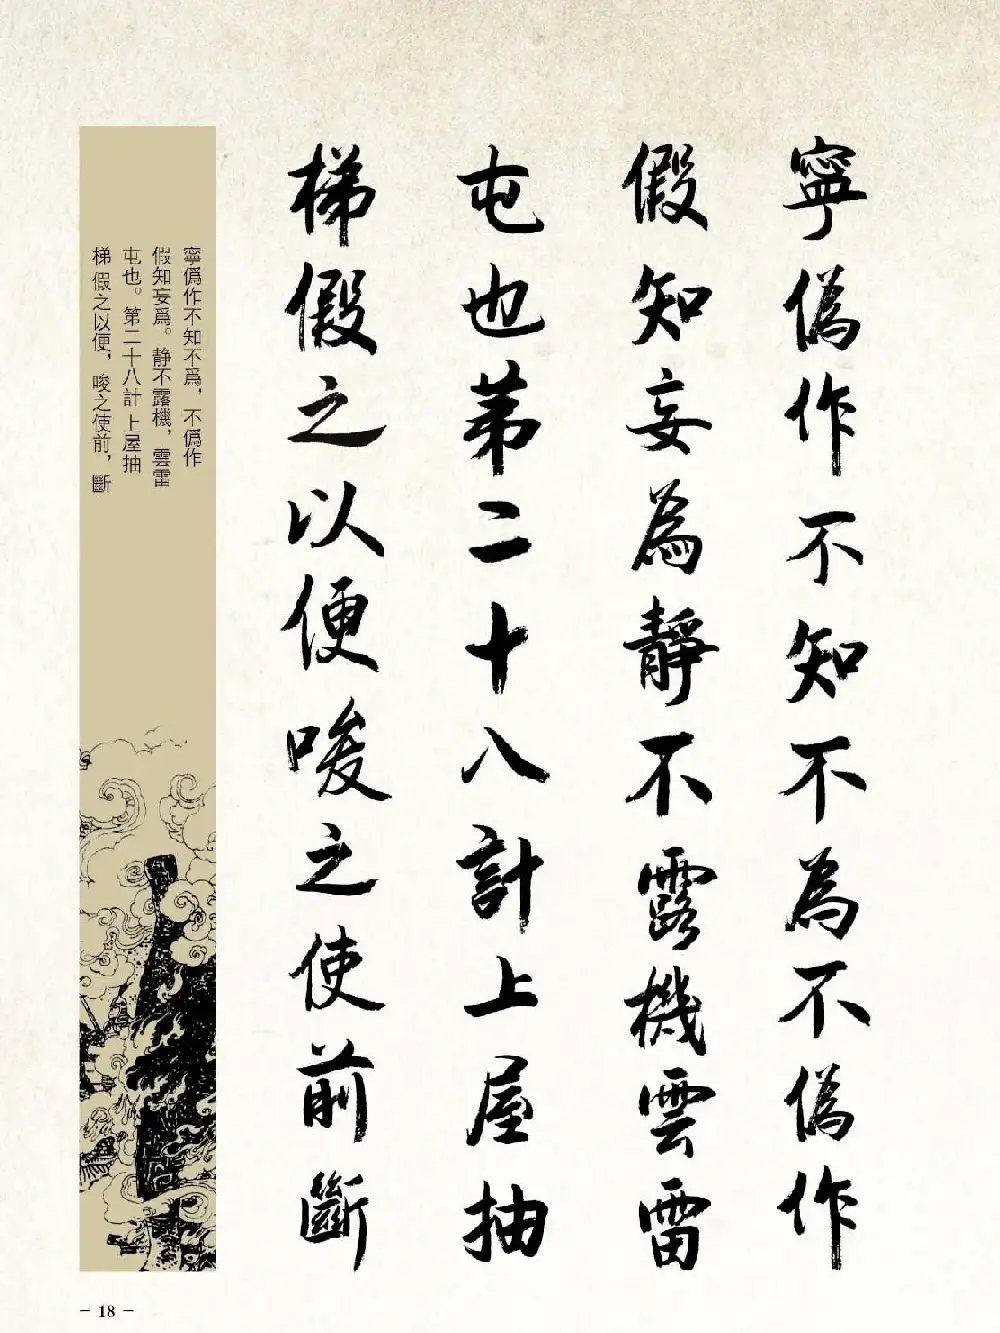 寧偽作不知不為不偽作
假知妄為靜不露機雲雷
屯也第二十八計上屋抽
梯假之以便唆之使前斷
寧僞作不知不爲，不僞作
假知妄爲。静不露機，雲雷
屯也。第二十八計 上屋抽
梯 假之以便，唆之使前，斷
- 18 -